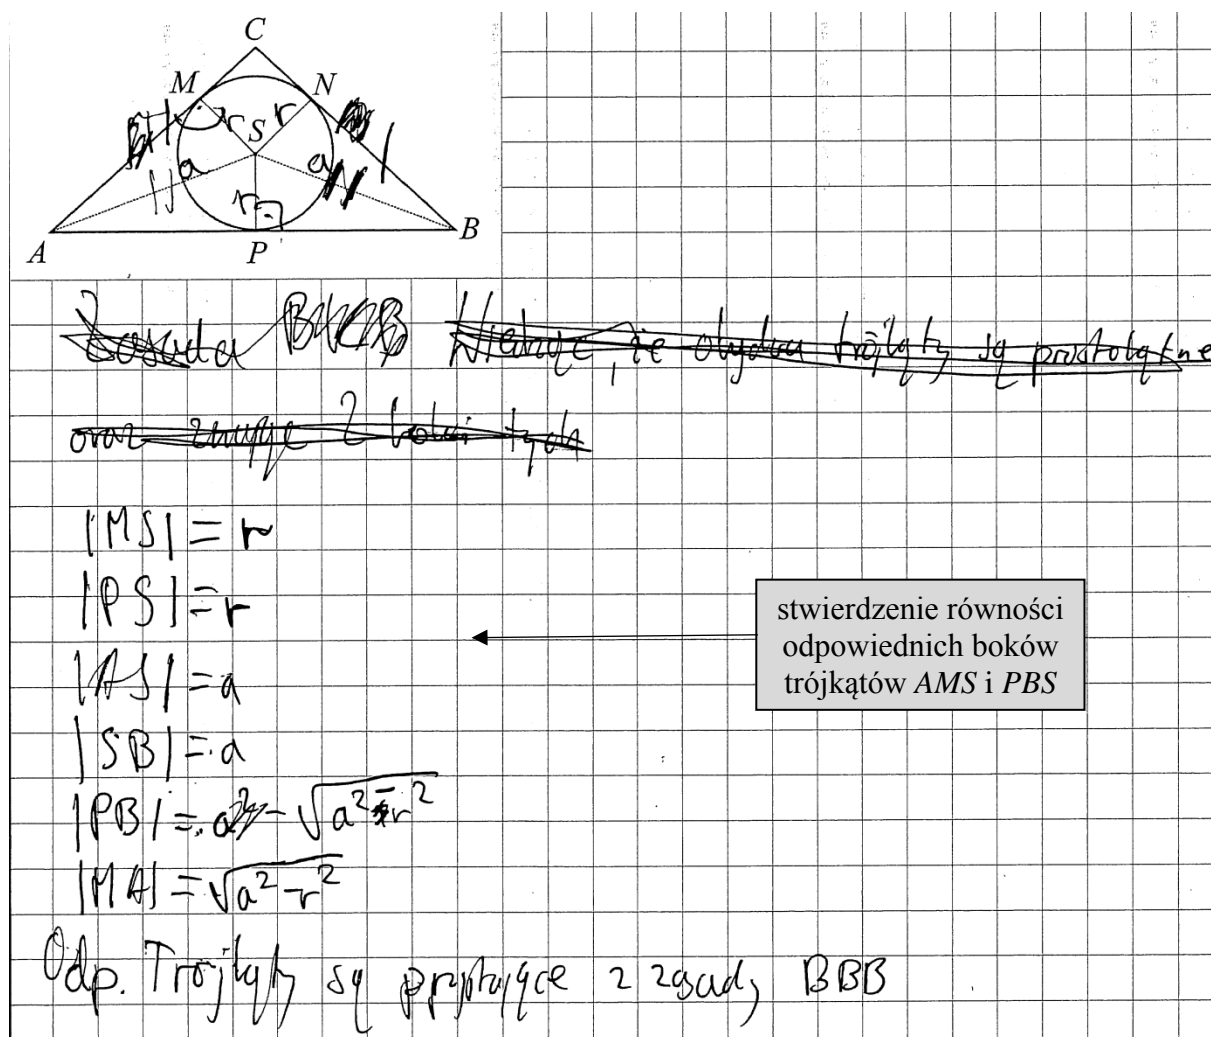 C
M N
r r
S
a a
r
A P B
Zasada BKB Wiedząc, że obydwa trójkąty są prostokątne
oraz znając 2 boki tych
|MS| = r
|PS| = r
|AS| = a
|SB| = a
|PB| = √a² - r²
|MA| = √a² - r²
stwierdzenie równości
odpowiednich boków
trójkątów AMS i PBS
Odp. Trójkąty są przystające z zasady BBB